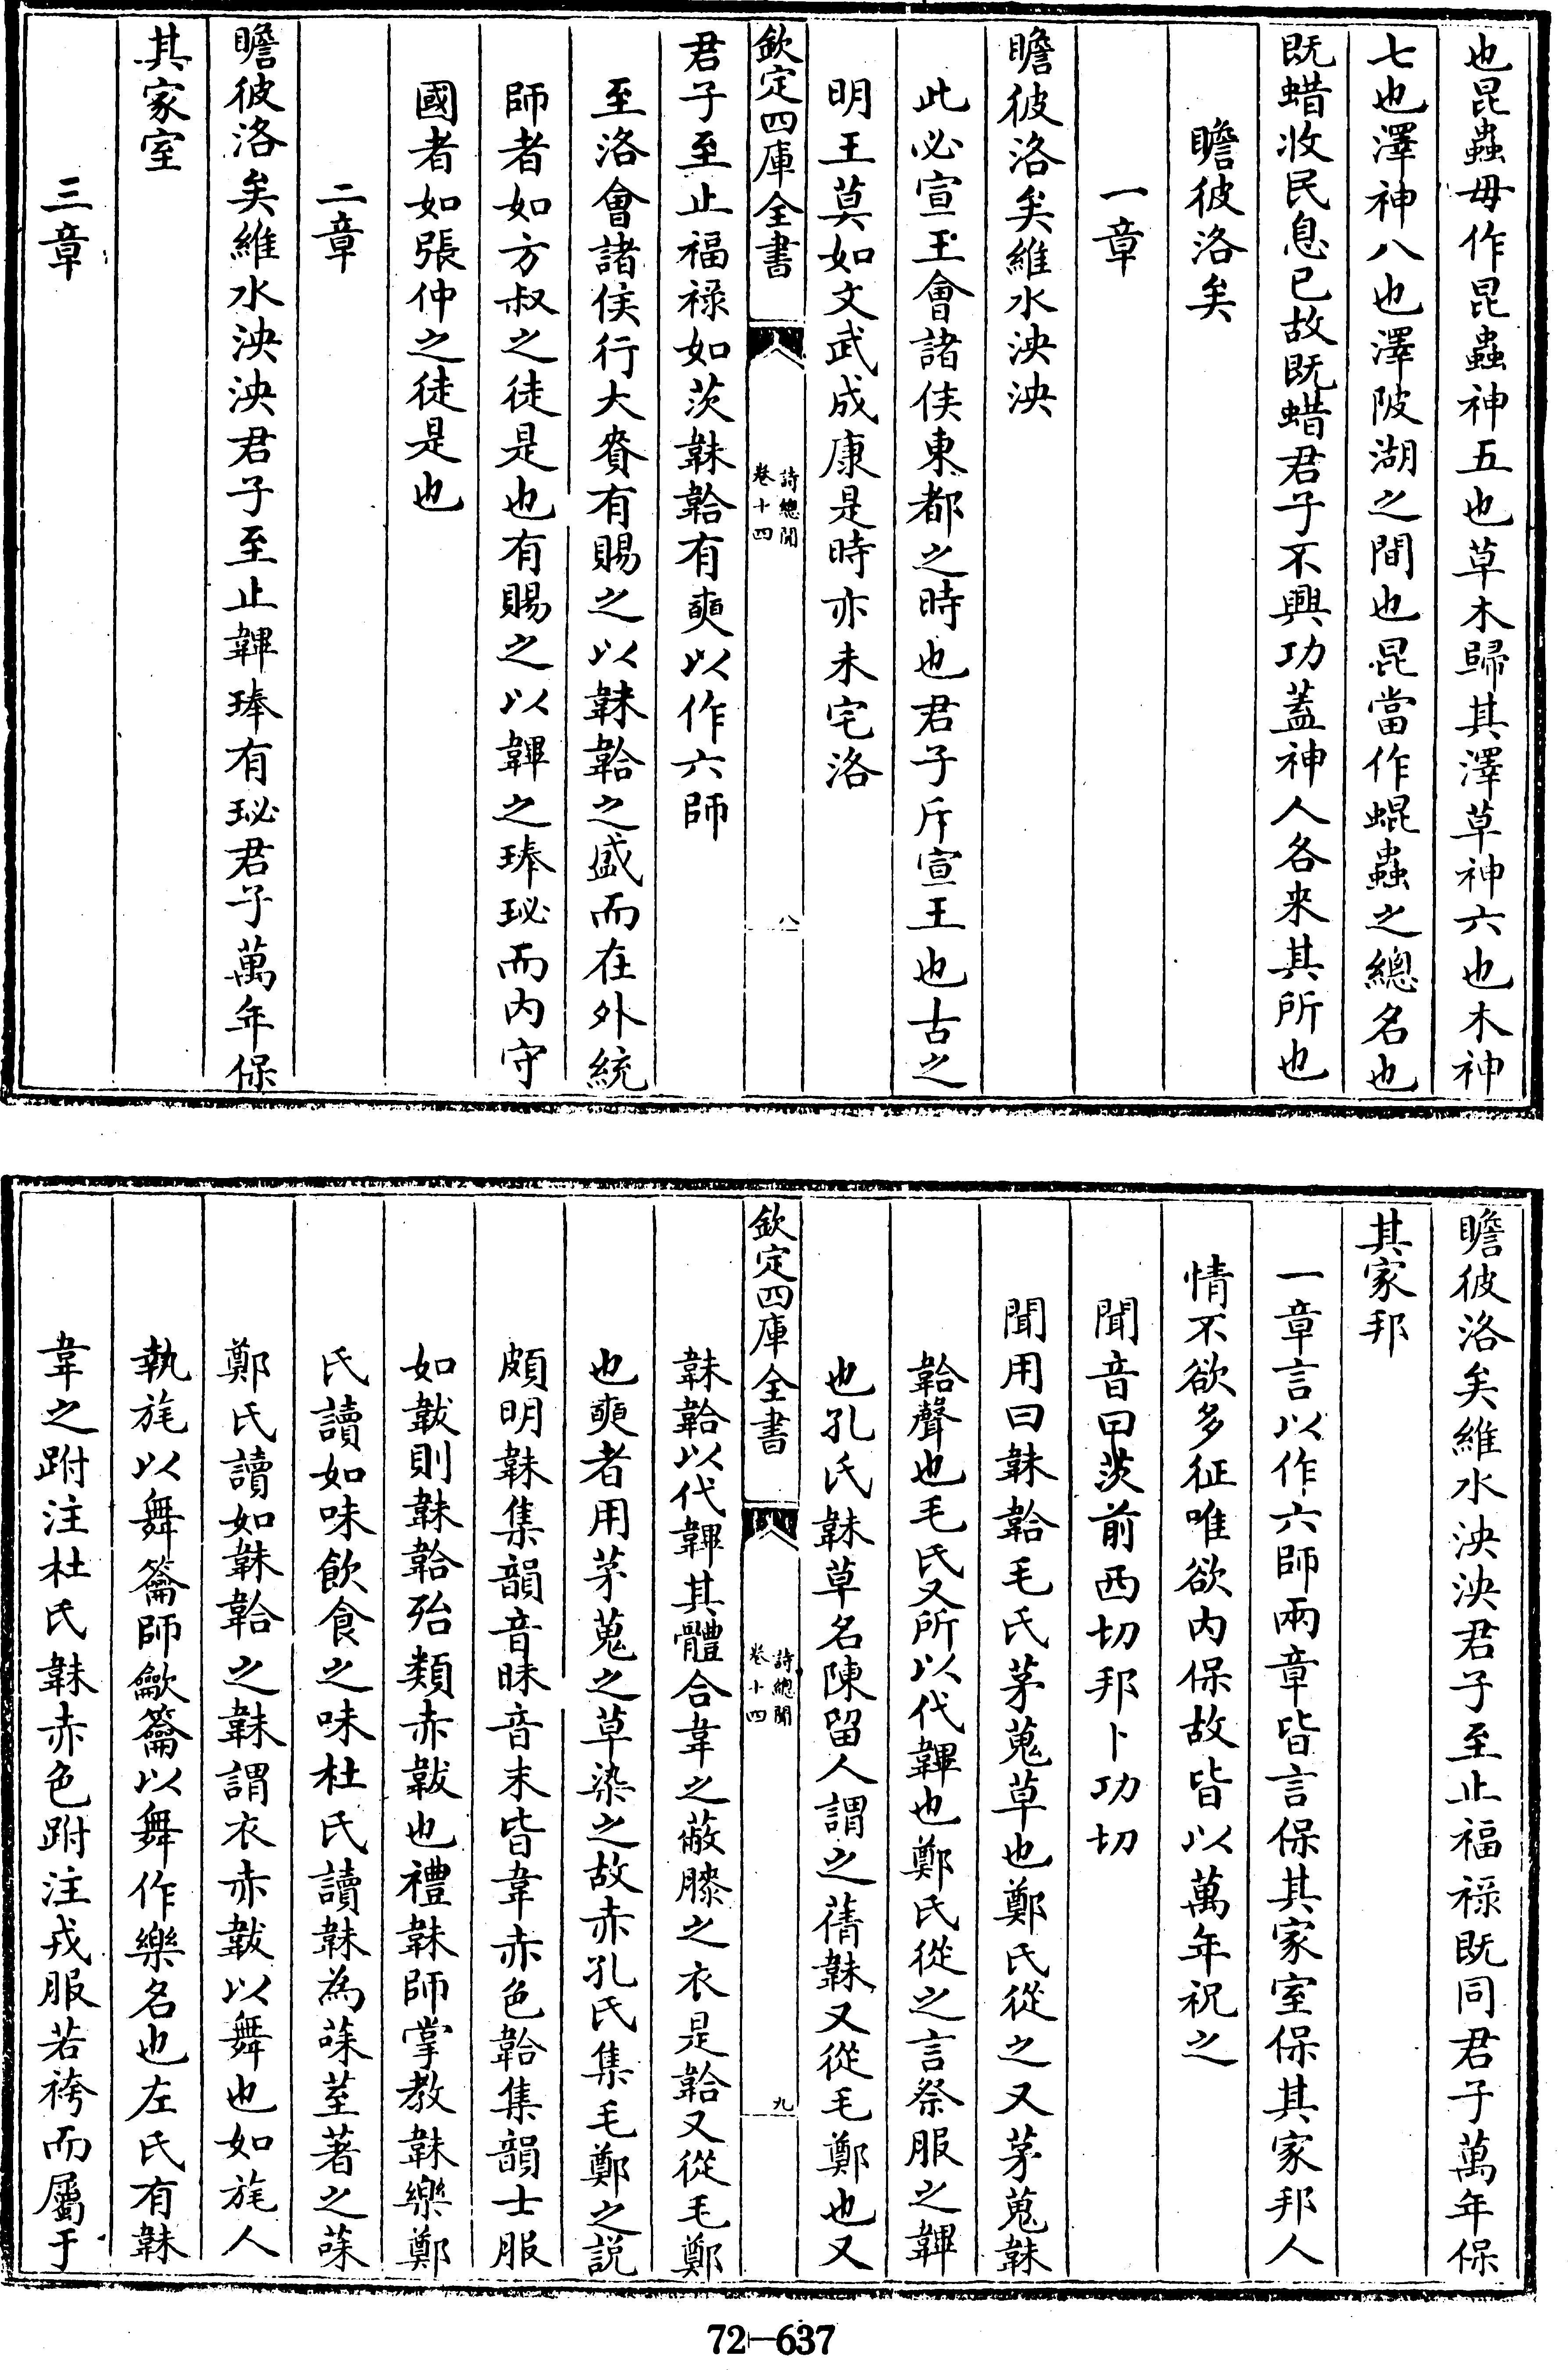 也昆蟲毋作昆蟲神五也草木歸其澤草神六也木神
七也澤神八也澤陂湖之間也昆當作蜫蟲之總名也
既蜡收民息已故既蜡君子不興功蓋神人各来其所也
瞻彼洛矣
一章
瞻彼洛矣維水泱泱
此必宣王會諸侯東都之時也君子斥宣王也古之
明王莫如文武成康是時亦未宅洛
欽定四庫全書
詩總聞
卷十四
八
君子至止福禄如茨韎韐有奭以作六師
至洛會諸侯行大賚有賜之以韎韐之盛而在外統
師者如方叔之徒是也有賜之以鞸之琫珌而内守
國者如張仲之徒是也
二章
瞻彼洛矣維水泱泱君子至止鞸琫有珌君子萬年保
其家室
三章
瞻彼洛矣維水泱泱君子至止福禄既同君子萬年保
其家邦
一章言以作六師兩章皆言保其家室保其家邦人
情不欲多征唯欲内保故皆以萬年祝之
聞音曰茨前西切邦卜功切
聞用曰韎韐毛氏茅蒐草也鄭氏從之又茅蒐韎
韐聲也毛氏又所以代鞸也鄭氏從之言祭服之鞸
也孔氏韎草名陳留人謂之蒨韎又從毛鄭也又
欽定四庫全書
詩總聞
卷十四
九
韎韐以代鞸其體合韋之蔽膝之衣是韐又從毛鄭
也奭者用茅蒐之草染之故赤孔氏集毛鄭之説
頗明韎集韻音昧音末皆韋赤色韐集韻士服
如韍則韎韐殆類赤韍也禮韎師掌教韎樂鄭
氏讀如味飲食之味杜氏讀韎為菋荎著之菋
鄭氏讀如韎韐之韎謂衣赤韍以舞也如旄人
執旄以舞籥師龡籥以舞作樂名也左氏有韎
韋之跗注杜氏韎赤色跗注戎服若袴而屬于
72-637